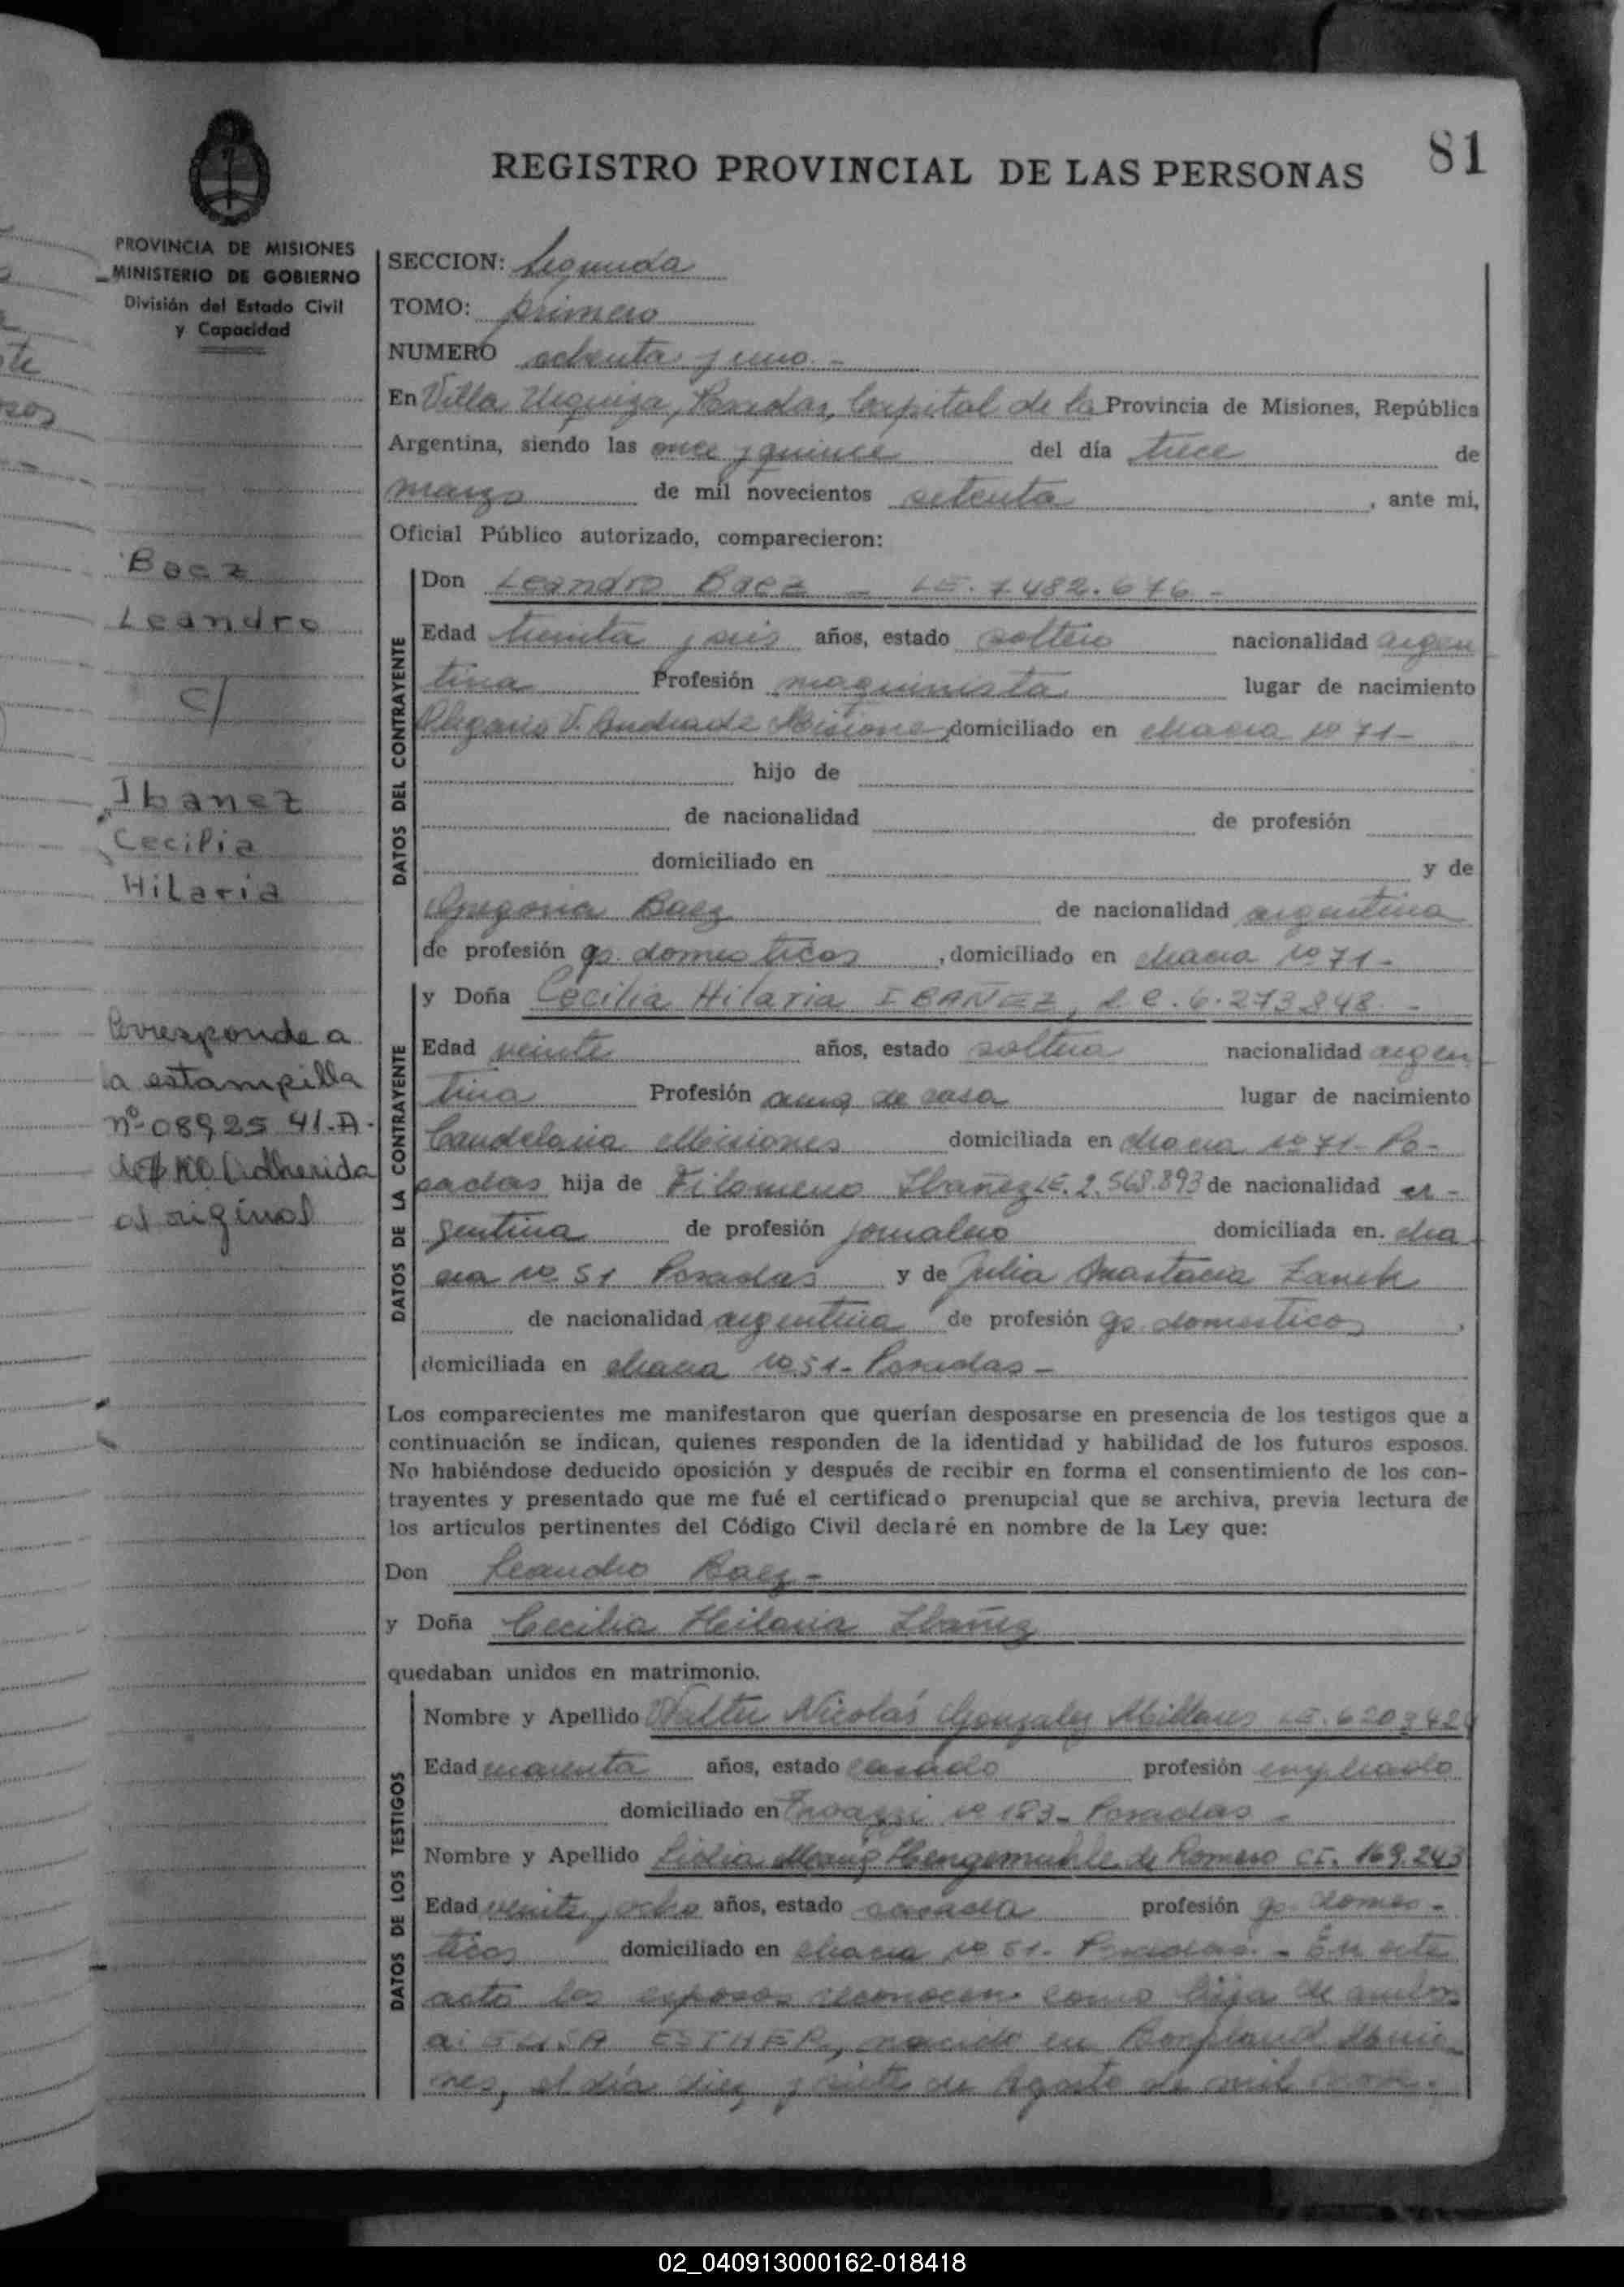 81
REGISTRO PROVINCIAL DE LAS PERSONAS
PROVINCIA DE MISIONES
MINISTERIO DE GOBIERNO
División del Estado Civil
y Capacidad
SECCION: Segunda
TOMO: primero
NUMERO ochenta y uno.-
En Villa Urquiza, Posadas, Capital de la Provincia de Misiones, República
Argentina, siendo las once y quince del día trece de
marzo de mil novecientos setenta, ante mi,
Oficial Público autorizado, comparecieron:
Baez
Leandro
c/
Ibanez
Cecilia
Hilaria
Corresponde a
la estampilla
nº 0892541-A-
de $ 100 Adherida
al original
DATOS DEL CONTRAYENTE
Don Leandro Baez - LE. 7.482.676.-
Edad treinta y seis años, estado soltero nacionalidad argen
tina Profesión maquinista lugar de nacimiento
Olegario V. Andrade Misiones, domiciliado en chacra nº 71-
hijo de
de nacionalidad de profesión
domiciliado en y de
Gregoria Baez de nacionalidad argentina
de profesión qs. domesticos, domiciliado en chacra nº 71-
DATOS DE LA CONTRAYENTE
y Doña Cecilia Hilaria IBAÑEZ, L.C. 6.273.848.-
Edad veinte años, estado soltera nacionalidad argen
tina Profesión ama de casa lugar de nacimiento
Candelaria Misiones domiciliada en chacra nº 71- Po-
sadas hija de Filomeno Ibañez LE. 2.568.893 de nacionalidad ar-
gentina de profesión jornalero domiciliada en. cha
cra nº 51 Posadas y de Julia Anastacia
de nacionalidad argentina de profesión qs. domesticos,
domiciliada en chacra nº 51- Posadas-
Los comparecientes me manifestaron que querían desposarse en presencia de los testigos que a
continuación se indican, quienes responden de la identidad y habilidad de los futuros esposos.
No habiéndose deducido oposición y después de recibir en forma el consentimiento de los con-
trayentes y presentado que me fué el certificado prenupcial que se archiva, previa lectura de
los artículos pertinentes del Código Civil declaré en nombre de la Ley que:
Don Leandro Baez-
y Doña Cecilia Hilaria Ibañez
quedaban unidos en matrimonio.
DATOS DE LOS TESTIGOS
Nombre y Apellido Walter Nicolás Gonzalez
Edad cuarenta años, estado casado profesión empleado
domiciliado en nº 183- Posadas-
Nombre y Apellido Hengemuhle de Romero CI. 169.243
Edad veinte y ocho años, estado casada profesión qs. domes-
ticos domiciliado en chacra nº 51- Posadas.- En este
acto los esposos reconocen como hija de ambos
a: ESTHER, nacida en Bonpland Misio-
nes, el día diez y siete de Agosto de mil nove-
02_040913000162-018418